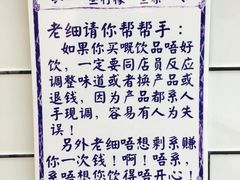 老细请你帮帮手：
如果你买嘅饮品唔好
饮，一定要同店员反应
调整味道或者换产品或
退钱，因为产品都系人
手现调，容易有人为失
误！
另外老细唔想剩系赚
你一次钱！啊！唔系，
系唔想你饮得唔开心！